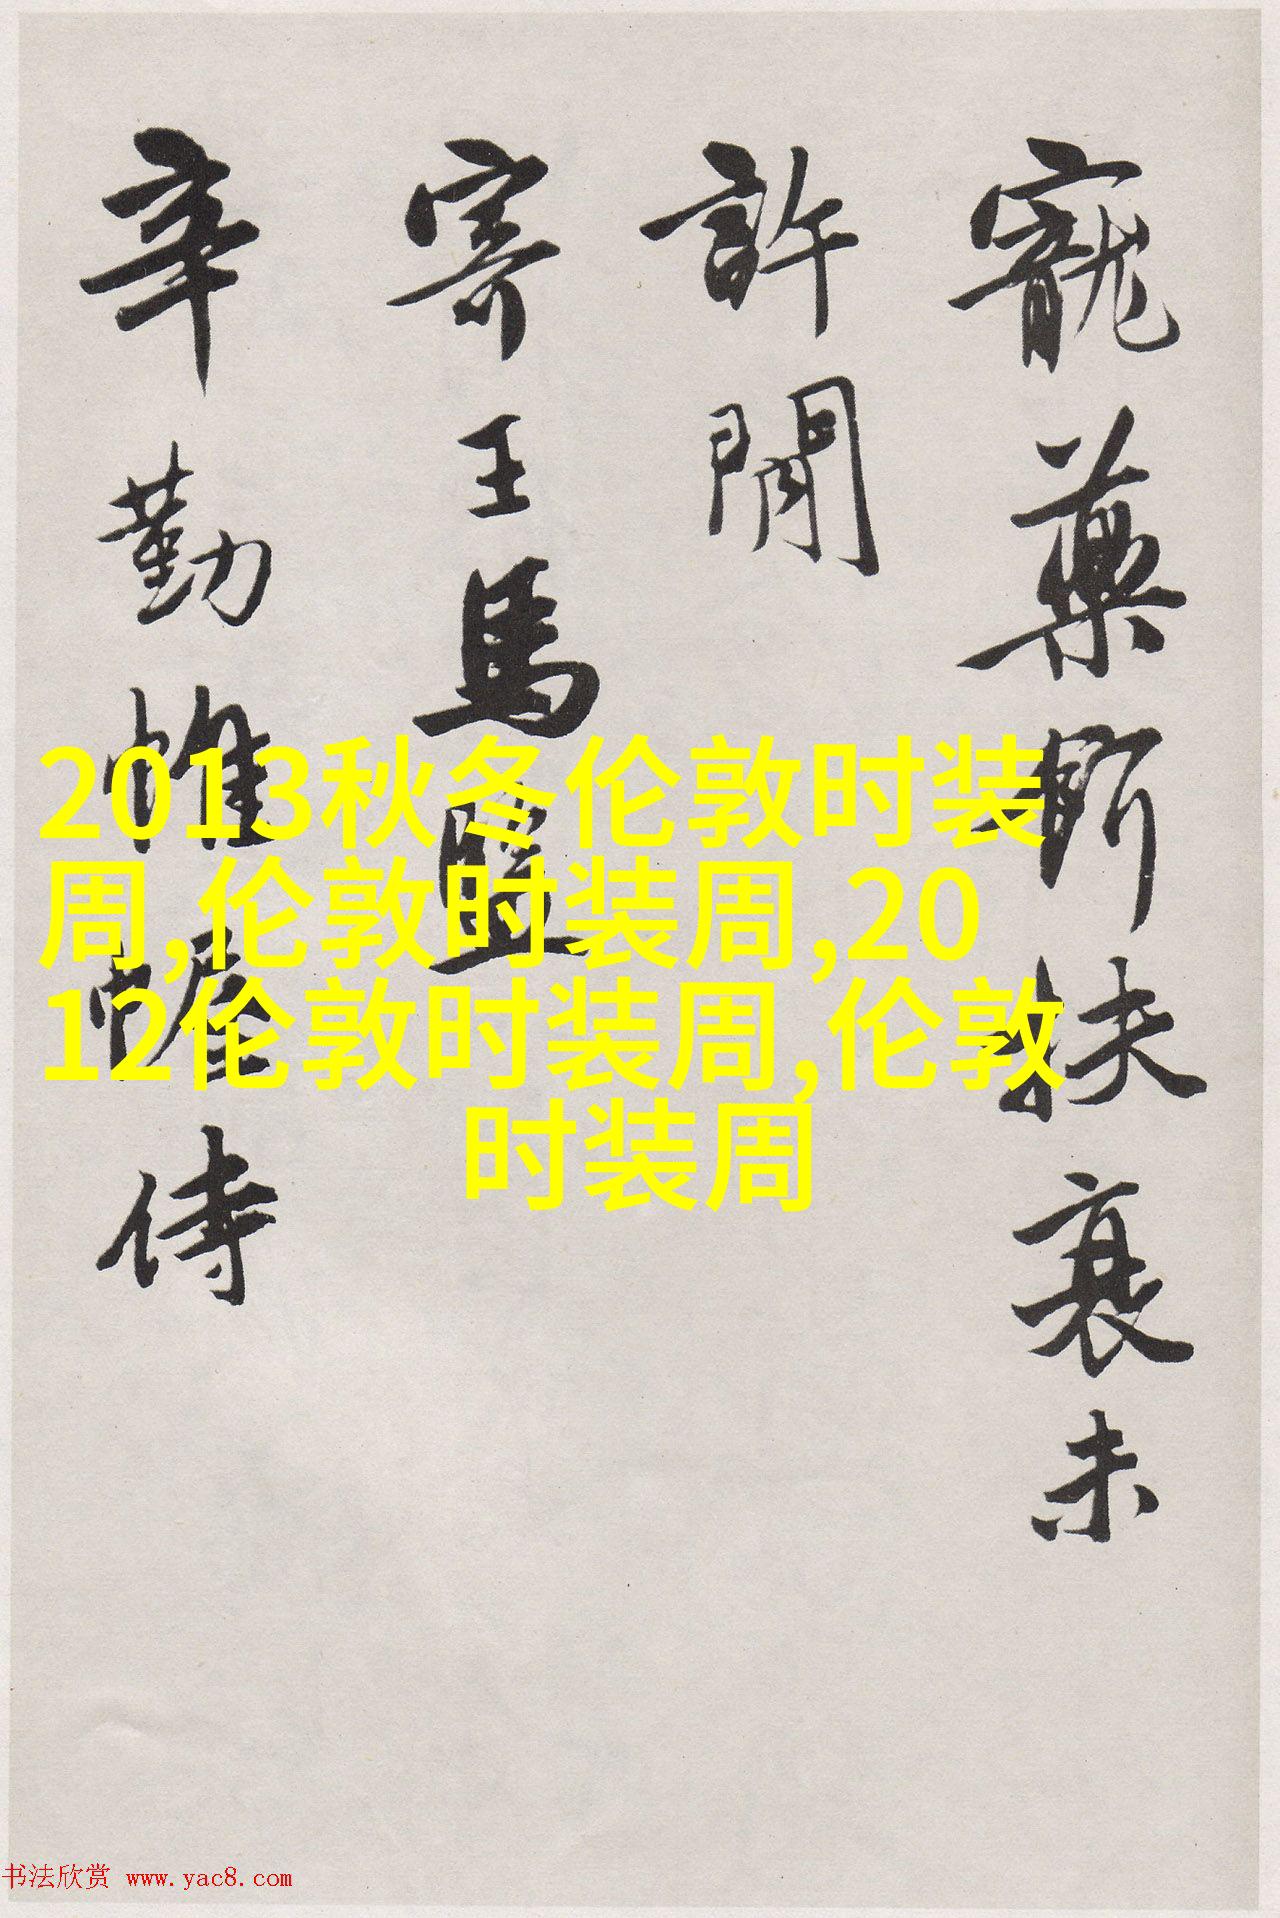 寵藥扶衰未
許閒
寄王馬監
辛勤帷幄侍
2013秋冬伦敦时装
周,伦敦时装周,20
12伦敦时装周,伦敦
时装周
书法欣赏 www.yac8.com